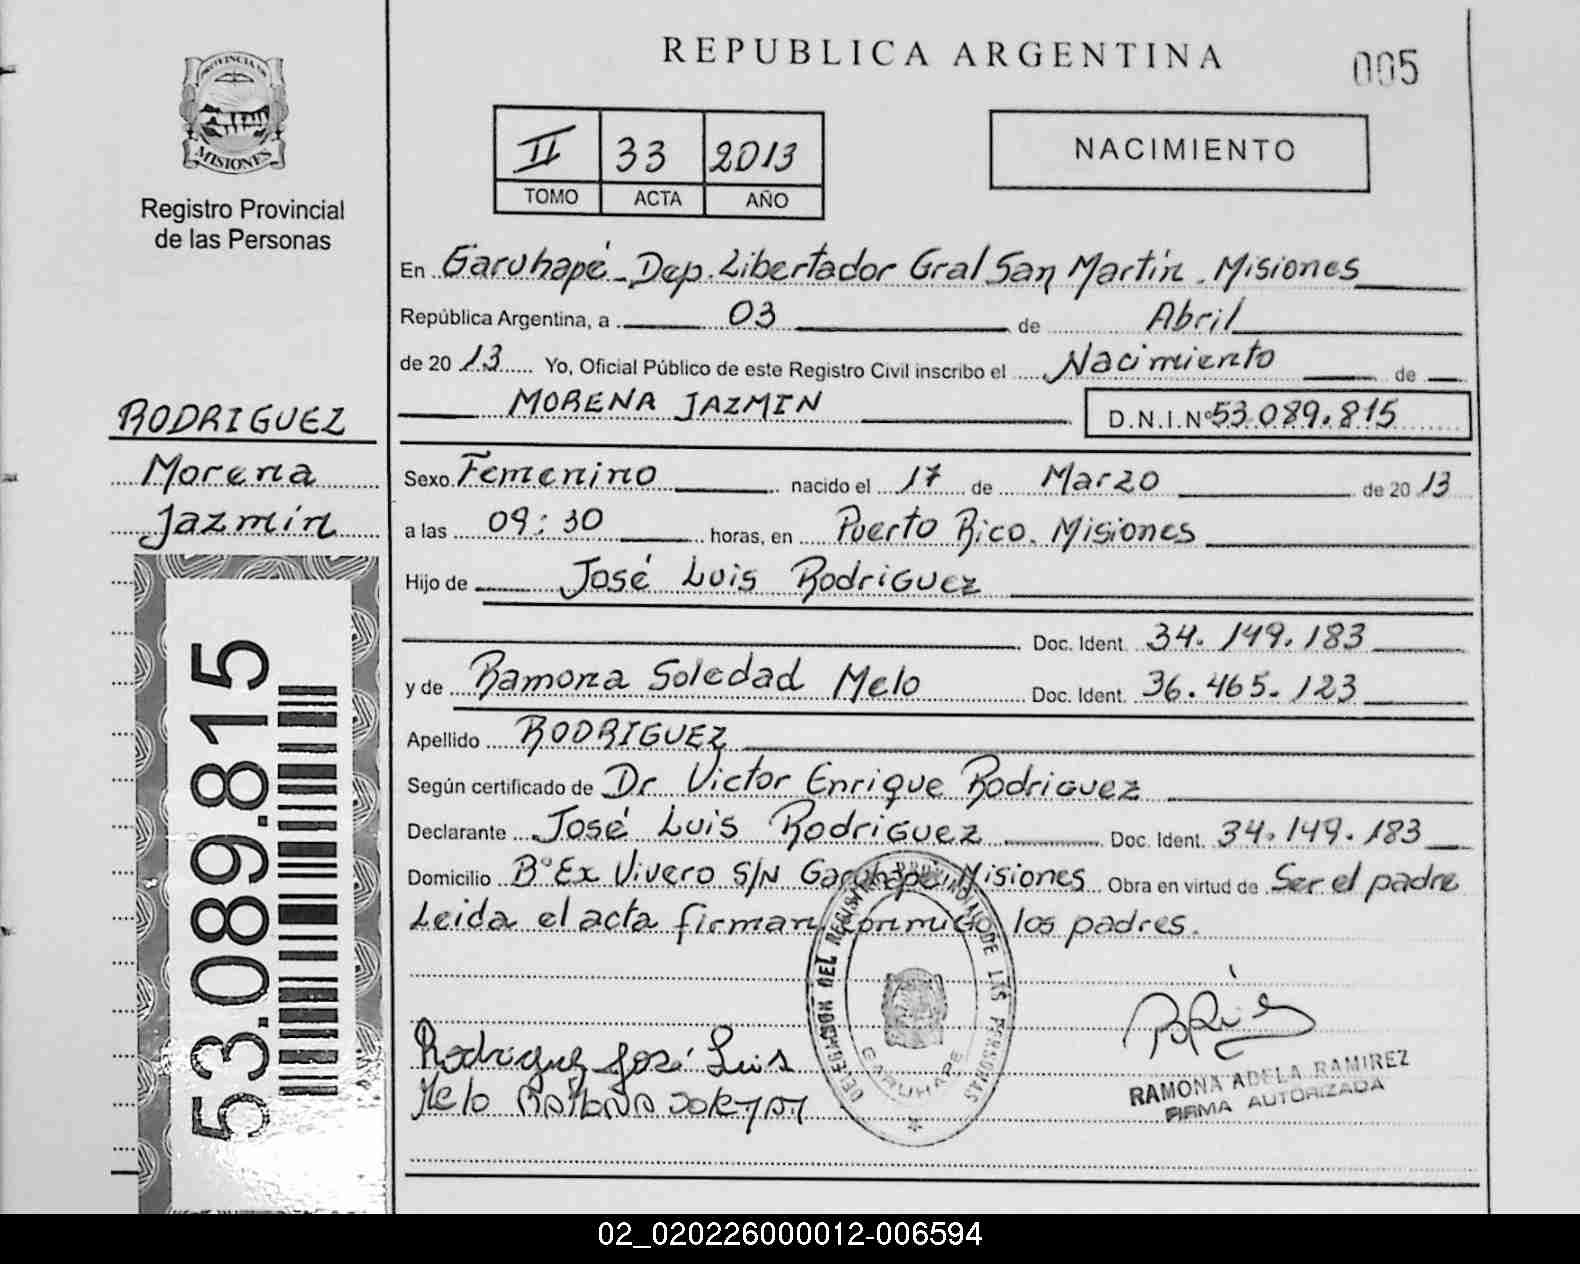 REPUBLICA ARGENTINA
005
PROVINCIA DE
MISIONES
Registro Provincial
de las Personas
II 33 2013
TOMO ACTA AÑO
NACIMIENTO
En Garuhapé - Dep. Libertador Gral San Martín. Misiones
República Argentina, a 03 de Abril
de 20 13 Yo, Oficial Público de este Registro Civil inscribo el Nacimiento de
MORENA JAZMIN D.N.I.Nº 53.089.815
RODRIGUEZ
Morena
Jazmín
Sexo Femenino nacido el 17 de Marzo de 20 13
a las 09:30 horas, en Puerto Rico. Misiones
Hijo de José Luis Rodriguez
Doc. Ident. 34.149.183
y de Ramona Soledad Melo Doc. Ident. 36.465.123
Apellido RODRIGUEZ
Según certificado de Dr Victor Enrique Rodriguez
Declarante José Luis Rodriguez Doc. Ident. 34.149.183
Domicilio Bº Ex Vivero S/N Garuhapé, Misiones Obra en virtud de Ser el padre
Leida el acta firman conmigo los padres.
53.089.815
DELEGACION DEL REGISTRO DE LAS PERSONAS
GARUHAPE
Rodriguez José Luis
Melo RAMONA
RAMONA ADELA RAMIREZ
FIRMA AUTORIZADA
02_020226000012-006594